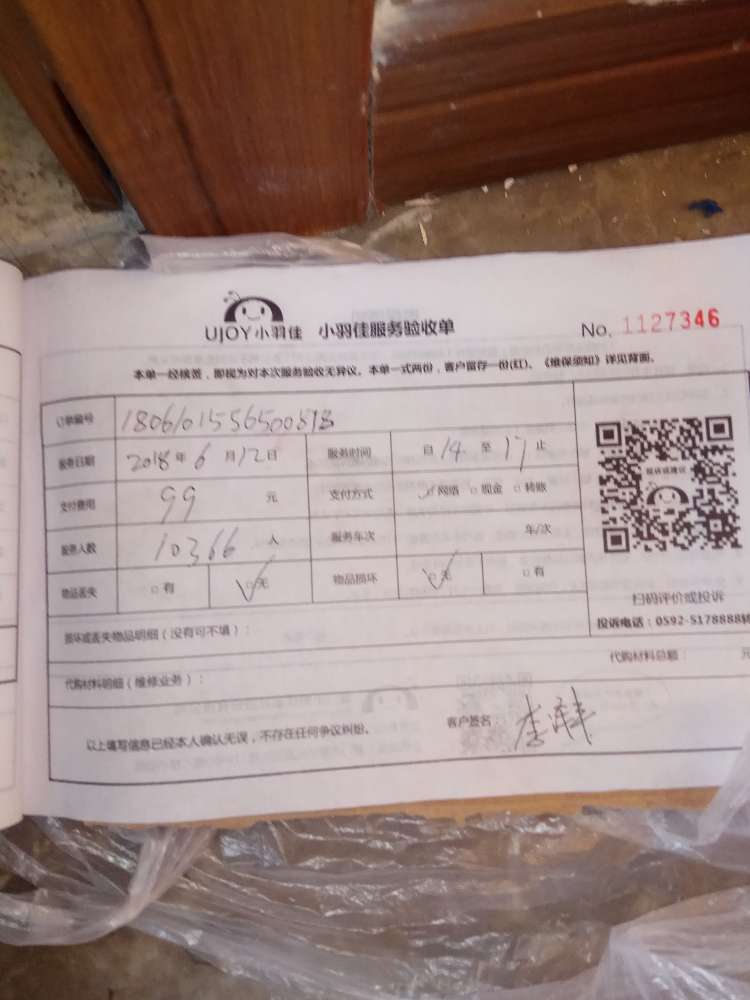 UJOY小羽佳 小羽佳服务验收单 No. 1127346
本单一经核签，即视为对本次服务验收无异议。本单一式两份，客户留存一份(红)。《维保须知》详见背面。
订单编号 1806101556500818
服务日期 2018年6月12日 服务时间 自14至17止
支付费用 99 元 支付方式 网络 现金 转账
服务人数 10366 人 服务车次 年/次
物品丢失 有 无 物品损坏 无 有
投诉或建议
扫码评价或投诉
投诉电话：0592-5178888转
损坏或丢失物品明细（没有可不填）：
代购材料明细（维修业务）： 代购材料总额： 元
以上填写信息已经本人确认无误，不存在任何争议纠纷。 客户签名： 李